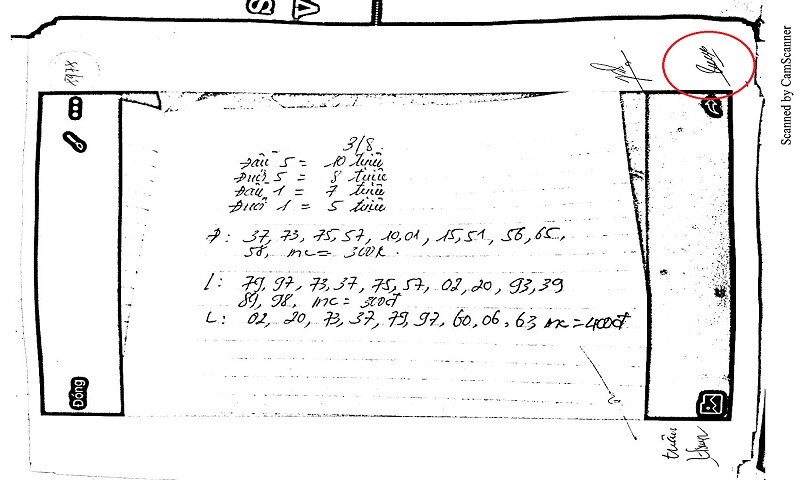 3/8.
Đầu 5 = 10 triệu
Đuôi 5 = 8 triệu
Đầu 1 = 7 triệu
Đuôi 1 = 5 triệu
Đ: 37, 73, 75, 57, 10, 01, 15, 51, 56, 65,
58, mc = 300k.
L: 79, 97, 73, 37, 75, 57, 02, 20, 93, 39
89, 98, mc = 300đ
L: 02, 20, 73, 37, 79, 97, 60, 06, 63 mc = 400đ
Đóng
1978
Scanned by CamScanner